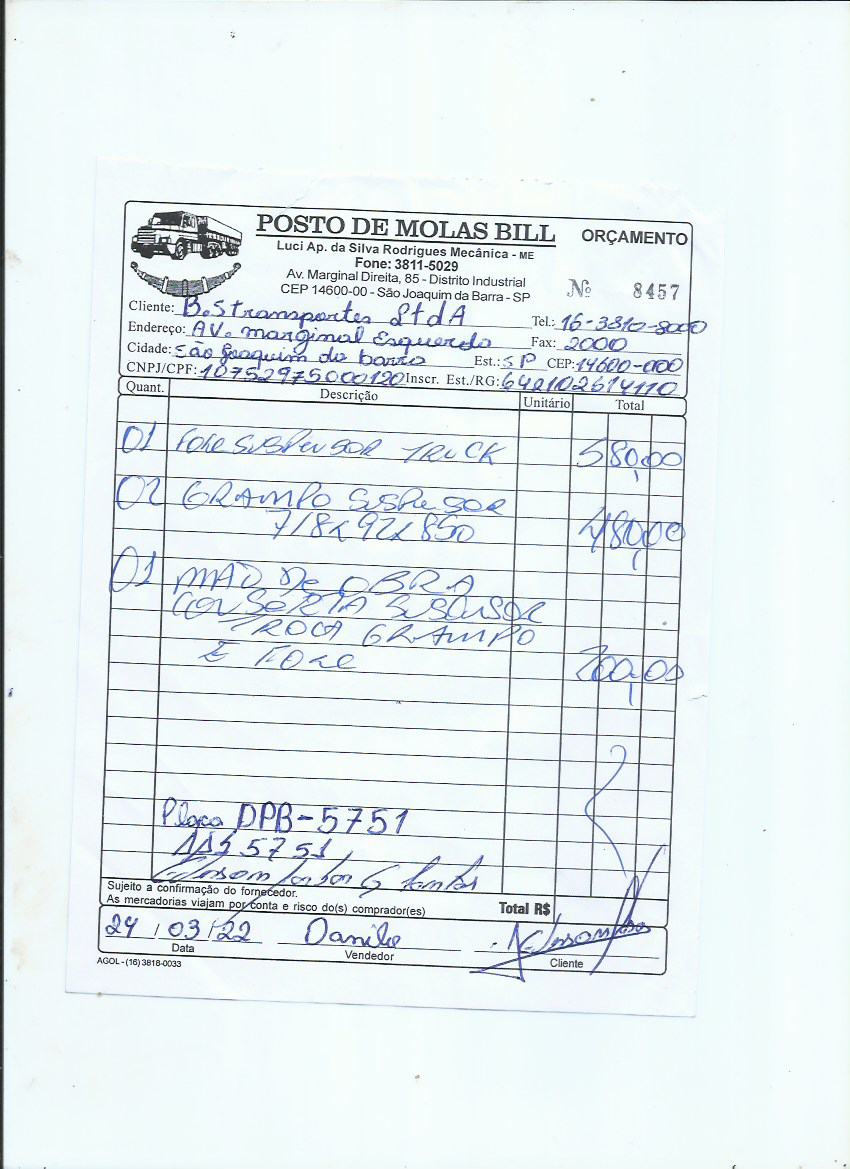 POSTO DE MOLAS BILL
ORÇAMENTO
Luci Ap. da Silva Rodrigues Mecânica - ME
Fone: 3811-5029
Av. Marginal Direita, 85 - Distrito Industrial
CEP 14600-00 - São Joaquim da Barra - SP
Nº 8457
Cliente: B.S transportes LtdA Tel.: 16-3810-8000
Endereço: AV. marginal Esquerda Fax: 2000
Cidade: São Joaquim da barra Est.: SP CEP: 14600-000
CNPJ/CPF: 10752975000120 Inscr. Est./RG: 642102614110
Quant. Descrição Unitário Total
01 FOLE SUSPENSOR TRUCK 580,00
02 GRAMPO SUSPENSOR
7/8x92x850 480,00
01 MÃO De OBRA
CONSERTA SUSPENSOR
TROCA GRAMPO
E FOLE 200,00
Placa DPB-5751
5751
Sujeito a confirmação do fornecedor.
As mercadorias viajam por conta e risco do(s) comprador(es)
Total R$
24 / 03 / 22 Danilo
Data Vendedor Cliente
AGOL - (16) 3818-0033